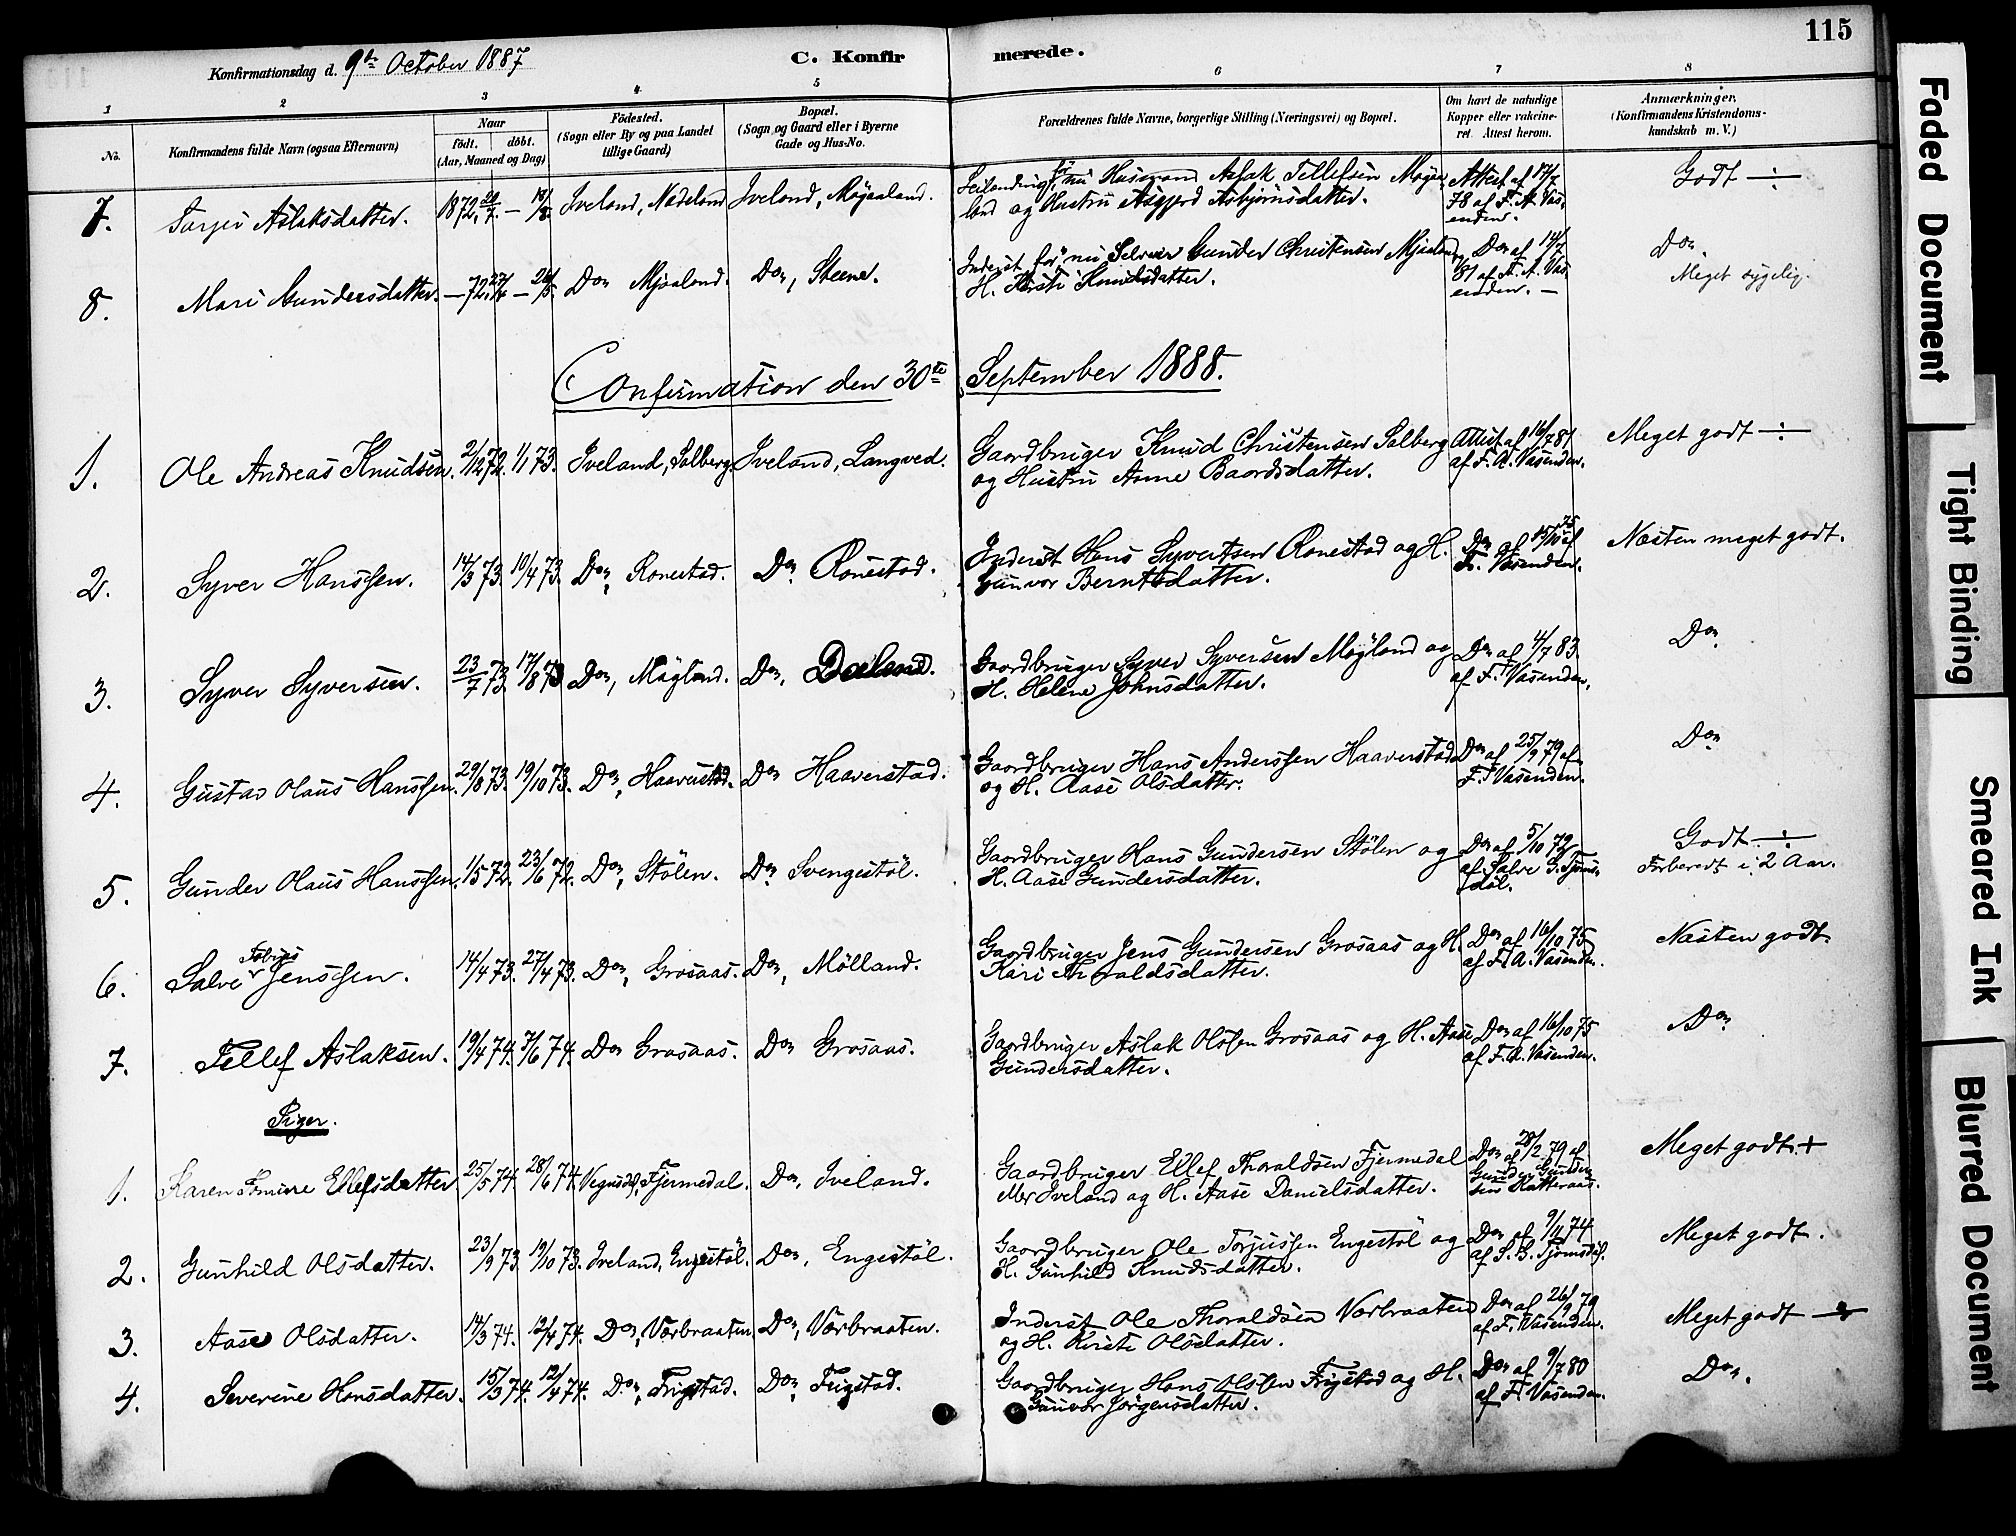 115
Konfirmationsdag d. 9de October 1887 C. Konfirmerede.
1 2 3 4 5 6 7 8
No. Konfirmandens fulde Navn (ogsaa Efternavn) Naar født. døbt. (Aar, Maaned og Dag) Fødested. (Sogn eller By og paa Landet tillige Gaard) Bopæl. (Sogn og Gaard eller i Byerne Gade og Hus-No. Forældrenes fulde Navne, borgerlige Stilling (Næringsvei) og Bopæl. Om havt de naturlige Kopper eller vakcineret. Attest herom. Anmærkninger. (Konfirmandens Kristendomskundskab m. V.)
7. Aslaksdatter. 1872. Iveland, Iveland, nu Husmand Aslak Tellefsen
og Hustru Asgjerd Asbjørnsdatter. Attest af 17/7 78 af F. A. Vasenden. Godt ÷
8. Mari Gundersdatter. — 72. Do, Mjaaland. Do, Steene. Inderst før, nu Gunder Christensen Mjaaland,
H. Kirsti Knudsdatter. Do af 14/7 81 af F. A. Vasenden. — Do.
Meget sygelig.
Confirmation den 30te September 1888.
1. Ole Andreas Knudsen. 2/12 72. 1/1 73. Iveland, Solberg. Iveland, Langved. Gaardbruger Knud Christensen Solberg
og Hustru Anne Baardsdatter. Attest af 16/7 81 af F. A. Vasenden. Meget godt ÷
2. Syver Hanssen. 14/3 73. 10/4 73. Do, Ronestad. Do, Ronestad. Inderst Hans Syvertsen Ronestad og H.
Gunvor Berntsdatter. Do af 15/10 75 af F. Vasenden. Næsten meget godt.
3. Syver Syversen. 23/7 73. 17/8 73 Do, Mögland. Do, Gaardbruger Syver Syversen Mögland og
H. Helene Johnsdatter. Do af 4/7 83 af F. Vasenden. Do.
4. Gustav Olaus Hanssen. 29/8 73. 19/10 73. Do, Haaverstad. Do Haaverstad. Gaardbruger Hans Anderssen Haaverstad
og H. Aase Olsdatter. Do af 25/9 79 af F. Vasenden. Do.
5. Gunder Olaus Hanssen. 1/5 72. 23/6 72. Do, Stölen. Do, Svengestöl. Gaardbruger Hans Gundersen Stölen og
H. Aase Gundersdatter. Do af 5/10 79 af Salve G. Godt ÷
Forberedt i 2 Aar.
6. Salve Tobias Jenssen. 14/4 73. 27/4 73. Do, Grosaas. Do, Mölland. Gaardbruger Jens Gundersen Grosaas og H.
Kari Thoraldsdatter. Do af 16/10 75 af F. A. Vasenden. Næsten godt.
7. Tellef Aslaksen. 19/4 74. 7/6 74. Do Grosaas. Do, Grosaas. Gaardbruger Aslak Olssen Grosaas og H. Aase
Gundersdatter. Do af 16/10 75 af F. A. Vasenden. Do.
Piger.
1. Karen Ellefsdatter 25/5 74. 28/6 74. Fjermedal. Do, Iveland. Gaardbruger Ellef Thoraldsen Fjermedal
Iveland og H. Aase Danielsdatter. Do af 28/2 79 af Gunder Gundersen Meget godt. +
2. Gunhild Olsdatter. 23/9 73. 19/10 73. Iveland, Engestöl. Do, Engestöl. Gaardbruger Ole Torjussen Engestöl og
H. Gunhild Knudsdatter. Do af 9/11 74 af S. G. Meget godt.
3. Aase Olsdatter. 14/3 74. 12/4 74. Do, Vorbraaten. Do, Vorbraaten. Inderst Ole Thoraldsen Vorbraaten
og H. Kirsti Olsdatter. Do af 26/9 79 af F. Vasenden. Meget godt
4. Severine Hansdatter. 15/3 74. 12/4 74. Do, Frigstad. Do, Frigstad. Gaardbruger Hans Olssen Frigstad og H.
Gunvor Jörgensdatter. Do af 9/7 80 af F. Vasenden. Do.
Faded Document
Tight Binding
Smeared Ink
Blurred Document